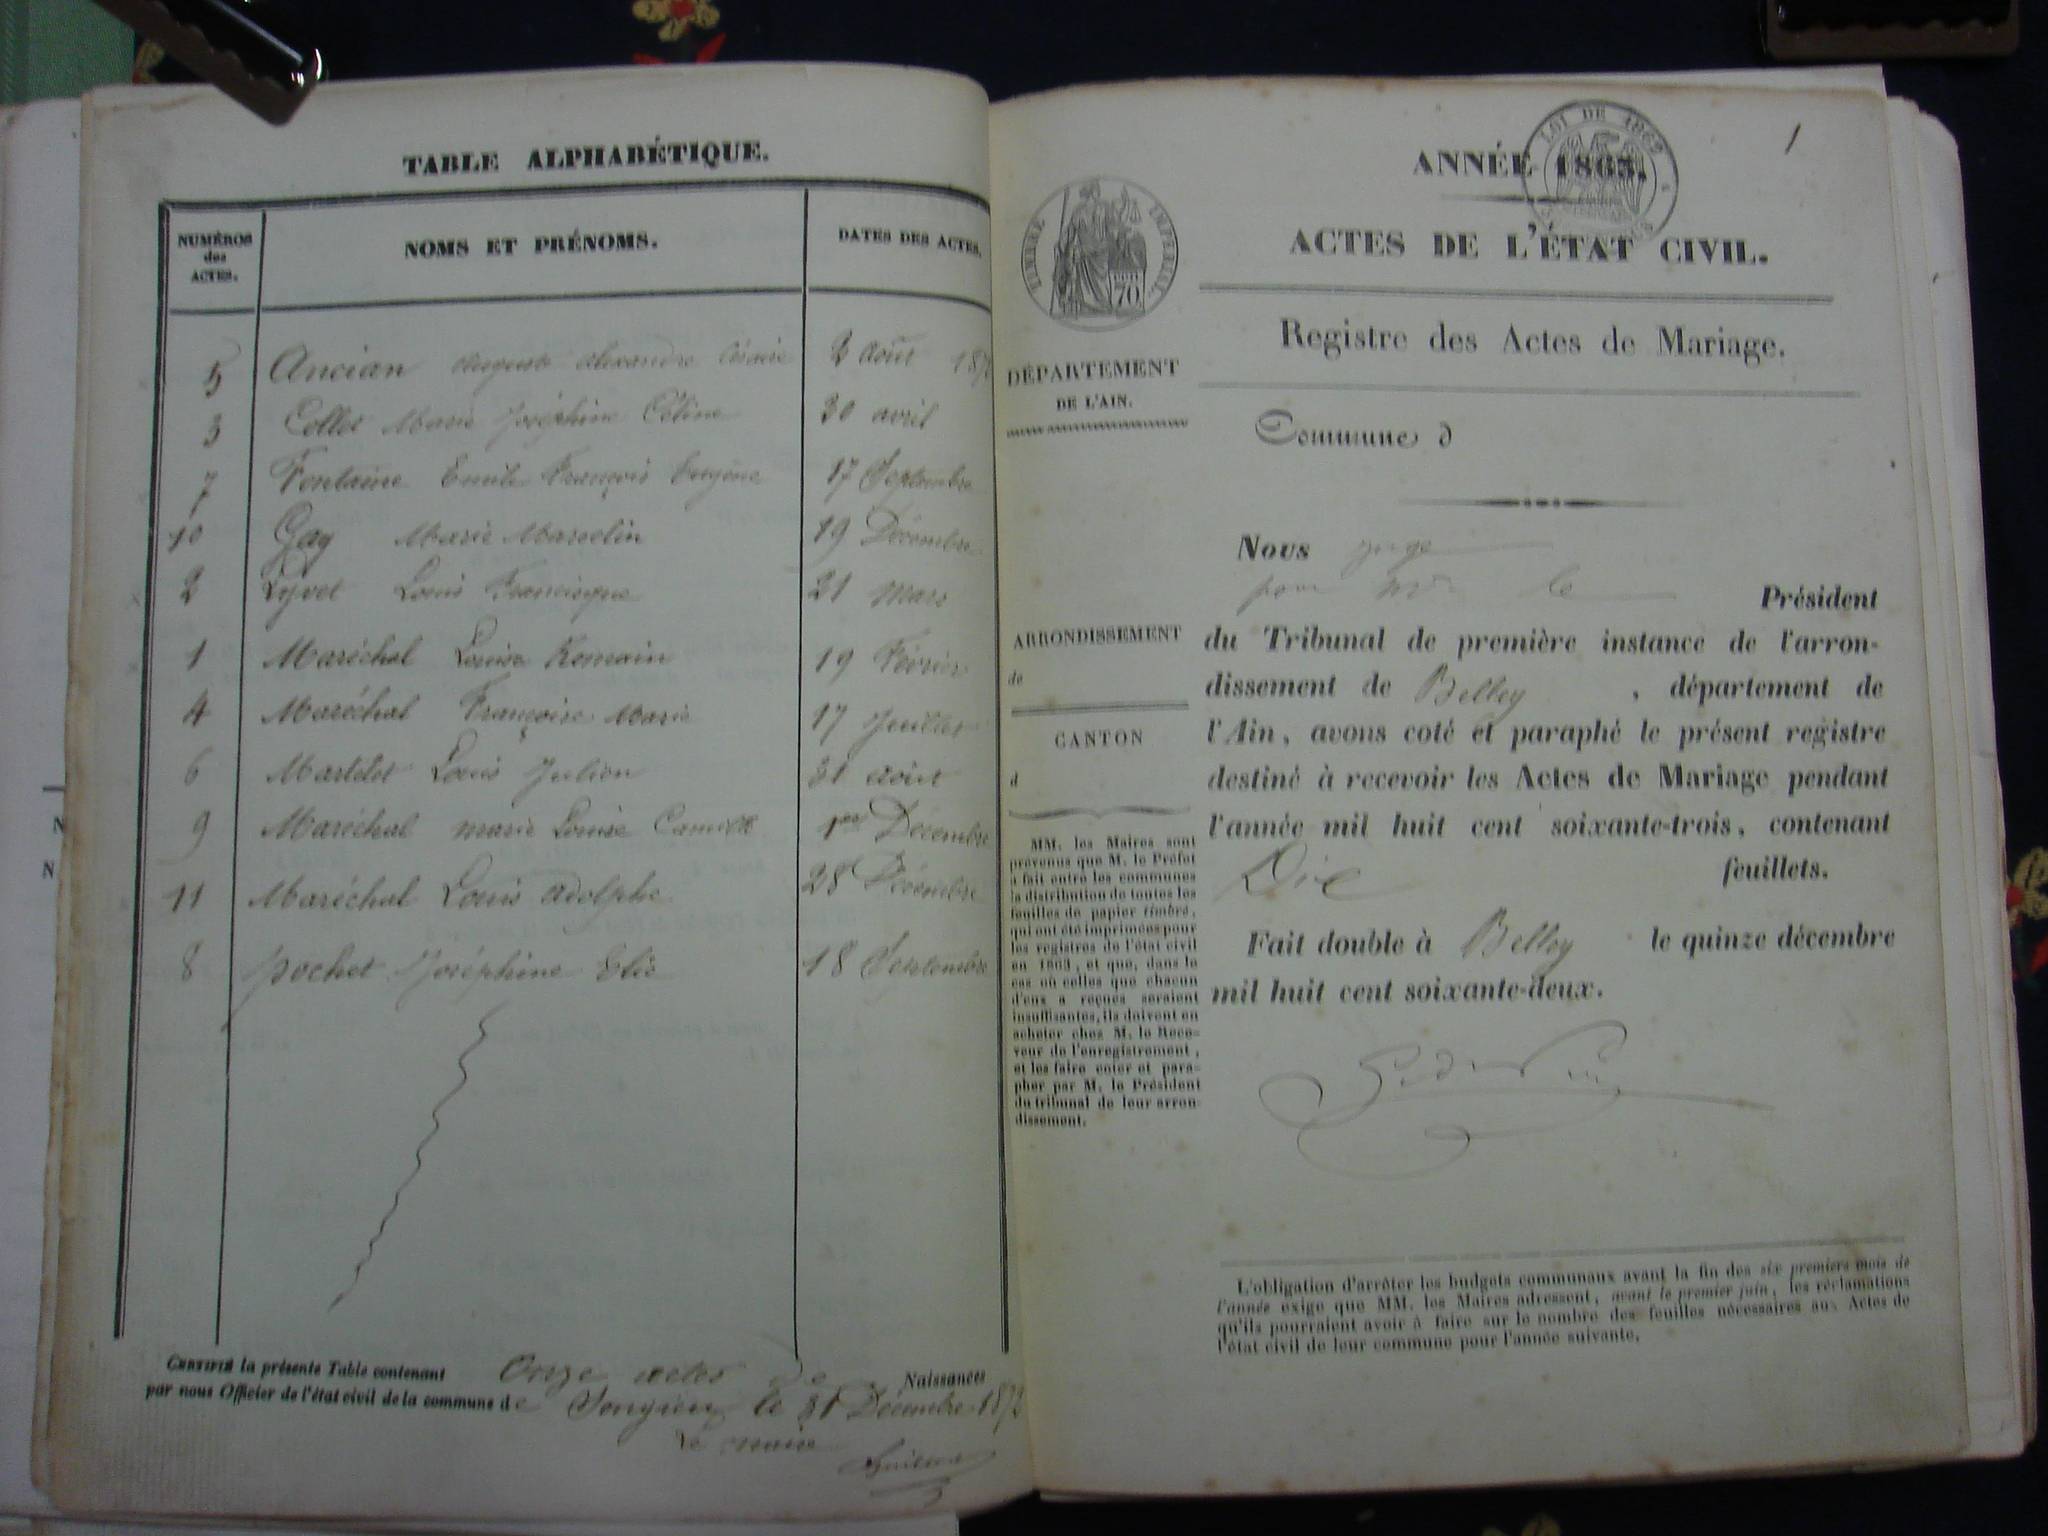 TABLE ALPHABÉTIQUE.
NUMÉROS des ACTES. NOMS ET PRÉNOMS. DATES DES ACTES.
5 Ancian auguste alexandre Césaire 2 août
3 Collet Marie Joséphine Céline 30 avril
7 Fontaine Emile François Eugène 17 Septembre
10 Gay Marie Marcelin 19 Décembre
2 Lyvet Louis Francisque 21 mars
1 Maréchal Louise Romain 19 Février
4 Maréchal Françoise Marie 17 Juillet
6 Martelet Louis Julien 31 août
9 Maréchal marie Louise 1er Décembre
11 Maréchal Louis adolphe 28 Décembre
8 pochet Joséphine Elie 18 Septembre
CERTIFIÉ la présente Table contenant Onze actes de Naissances
par nous Officier de l'état civil de la commune de Songieu le 31 Décembre
Le maire
1
LOI DE 1862
ANNÉE 1863.
TIMBRE IMPÉRIAL
70
ACTES DE L'ÉTAT CIVIL.
Registre des Actes de Mariage.
DÉPARTEMENT
DE L'AIN.
Commune d
ARRONDISSEMENT
de
CANTON
d
MM. les Maires sont
prévenus que M. le Préfet
a fait entre les communes
la distribution de toutes les
feuilles de papier timbré,
qui ont été imprimées pour
les registres de l'état civil
en 1863, et que, dans le
cas où celles que chacun
d'eux a reçues seraient
insuffisantes, ils doivent en
acheter chez M. le Rece-
veur de l'enregistrement,
et les faire coter et para-
pher par M. le Président
du tribunal de leur arron-
dissement.
Nous juge
pour Mr le Président
du Tribunal de première instance de l'arron-
dissement de Belley, département de
l'Ain, avons coté et paraphé le présent registre
destiné à recevoir les Actes de Mariage pendant
l'année mil huit cent soixante-trois, contenant
Dix feuillets.
Fait double à Belley le quinze décembre
mil huit cent soixante-deux.
L'obligation d'arrêter les budgets communaux avant la fin des six premiers mois de
l'année exige que MM. les Maires adressent, avant le premier juin, les réclamations
qu'ils pourraient avoir à faire sur le nombre des feuilles nécessaires aux Actes de
l'état civil de leur commune pour l'année suivante.